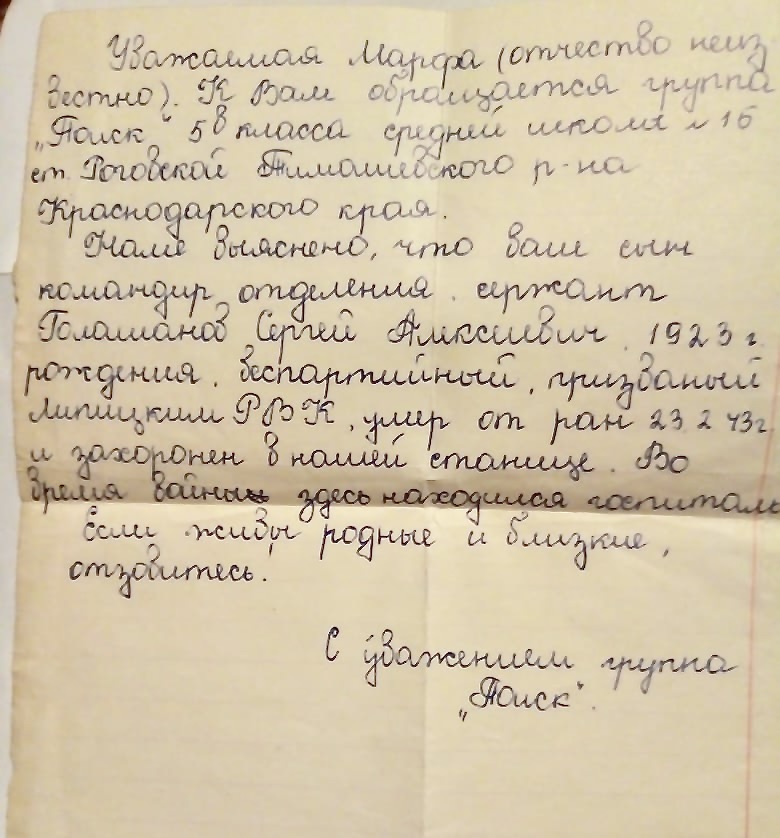 Уважаемая Марфа (отчество неиз-
вестно). К Вам обращается группа
„Поиск“ 5в класса средней школы №16
ст. Роговской Тимашевского р-на
Краснодарского края.
Нами выяснено, что ваш сын
командир отделения. сержант
Голашанов Сергей Алексеевич, 1923 г.
рождения, беспартийный, призваный
Липицким РВК, умер от ран 23.2.43г
и захоронен в нашей станице. Во
время войны здесь находился госпиталь
Если живы родные и близкие,
отзовитесь!
С уважением группа
„Поиск“.